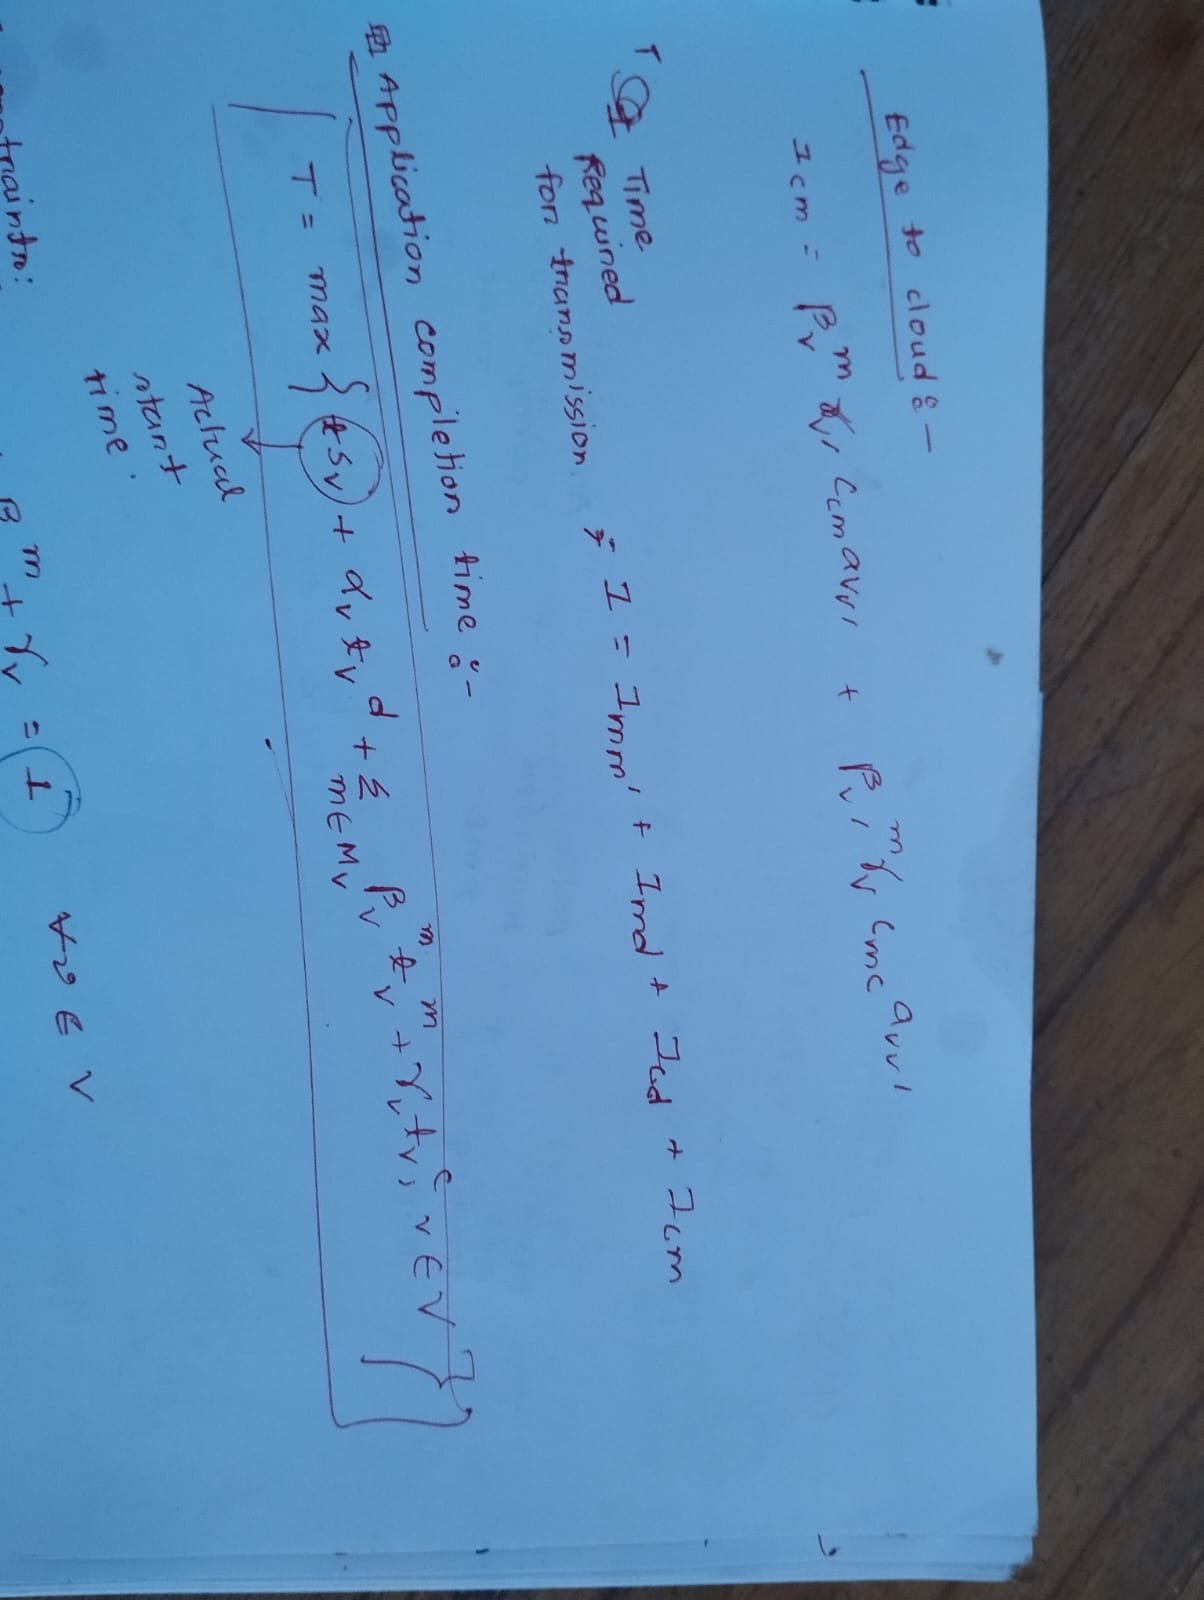 Edge to cloud :-
I cm = β_v^m γ_v' c_cm a_vv' + β_v'^m γ_v c_mc a_vv'
Time
Required
for transmission ; I = I_mm' + I_md + I_cd + I_cm
Application completion time :-
T = max { ts_v + α_v t_v^d + Σ_{m ∈ M_v} β_v^m t_v^m + γ_v t_v^c ; v ∈ V }
Actual
start
time.
traints:
β^m + γ_v = 1 ∀v ∈ V